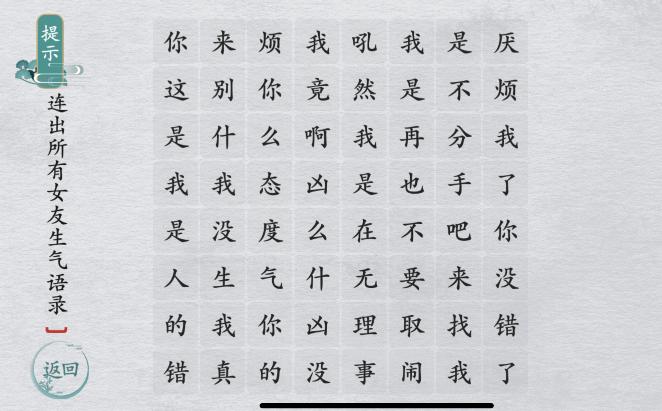 提示
连出所有女友生气语录
返回
你来烦我吼我是厌
这别你竟然是不烦
是什么啊我再分我
我我态凶是也手了
是没度么在不吧你
人生气什无要来没
的我你凶理取找错
错真的没事闹我了